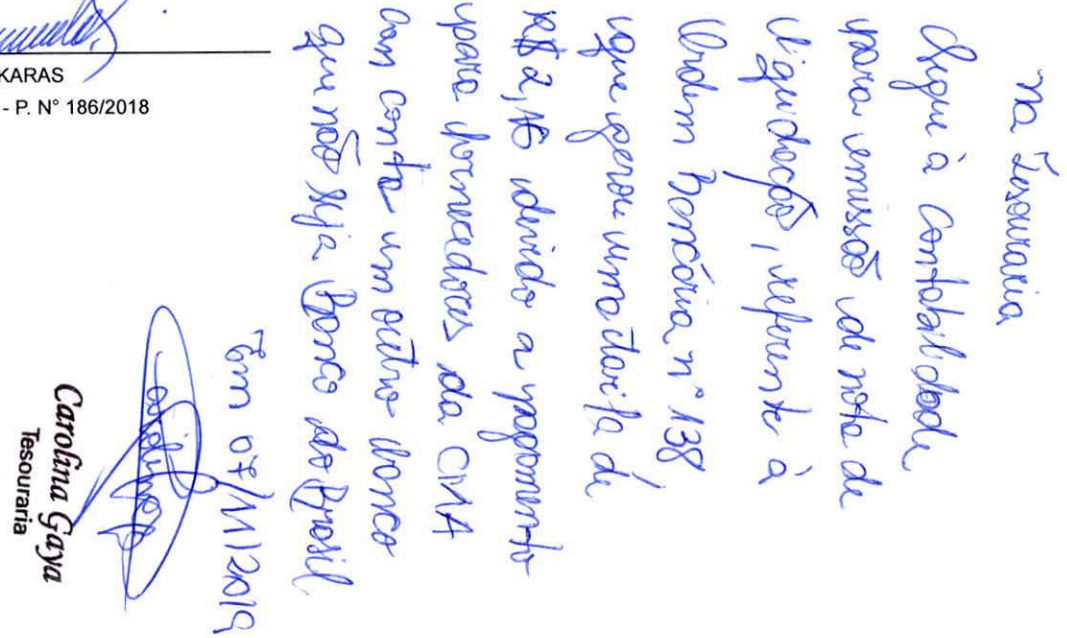 KARAS
- P. N° 186/2018
Na Tesouraria
Segue à Contabilidade
para emissão de nota de
liquidação, referente à
Ordem Bancária n° 138
que gerou uma tarifa de
R$ 2,16 devido a pagamento
para fornecedores da CMA
com conta um outro banco
que não seja Banco do Brasil
Em 07/11/2019
Carolina Gaya
Tesouraria